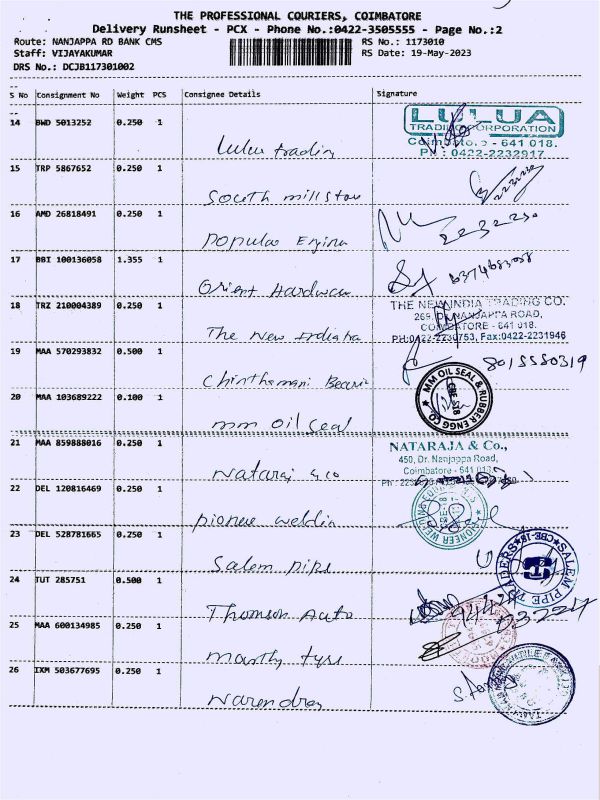 THE PROFESSIONAL COURIERS, COIMBATORE
Delivery Runsheet - PCX - Phone No.:0422-3505555 - Page No.:2
Route: NANJAPPA RD BANK CMS RS No.: 1173010
Staff: VIJAYAKUMAR RS Date: 19-May-2023
DRS No.: DCJB117301002
S No Consignment No Weight PCS Consignee Details Signature
14 BWD 5013252 0.250 1
Lulu trading
LULUA
TRADING CORPORATION
Coimbatore - 641 018.
PH : 0422-2232917
15 TRP 5867652 0.250 1
South mill store
223223
16 AMD 26818491 0.250 1
Popular Engina
2232230
17 BBI 100136058 1.355 1
Orient Hardware
18 TRZ 210004389 0.250 1
The New India
THE NEW INDIA TRADING CO.
269, Dr. NANJAPPA ROAD,
COIMBATORE - 641 018.
PH:0422-2230753, Fax:0422-2231946
19 MAA 570293832 0.500 1
Chinthamani Bearin
8015550319
20 MAA 103689222 0.100 1
mm oil seal
MM OIL SEAL & RUBBER ENGG CO
CBE-18
21 MAA 859888016 0.250 1
Nataraj & co
NATARAJA & Co.,
450, Dr. Nanjappa Road,
Coimbatore - 641 018.
22 DEL 120816469 0.250 1
pioneer weldin
23 DEL 528781665 0.250 1
Salem pipe
SALEM PIPE TRADERS
CBE-18
24 TUT 285751 0.500 1
Thomson Auto
25 MAA 600134985 0.250 1
26 IXM 503677695 0.250 1
Narendran